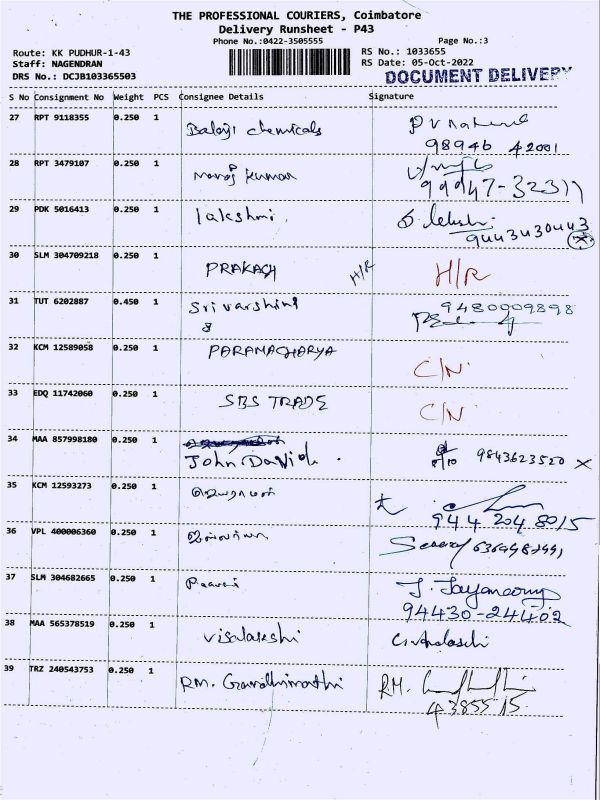 THE PROFESSIONAL COURIERS, Coimbatore
Delivery Runsheet - P43
Phone No.:0422-3505555
Page No.:3
Route: KK PUDHUR-1-43
RS No.: 1033655
Staff: NAGENDRAN
RS Date: 05-Oct-2022
DRS No.: DCJB103365503
DOCUMENT DELIVERY
S No Consignment No Weight PCS Consignee Details Signature
27 RPT 9118355 0.250 1 Balaji chemicals
98946 42001
28 RPT 3479107 0.250 1 manoj kumar
99947-32311
29 PDK 5016413 0.250 1 lakshmi
9443430443
30 SLM 304709218 0.250 1 PRAKASH H/R H/R
31 TUT 6202887 0.450 1 Srivarshini 9480009898
8
32 KCM 12589058 0.250 1 PARAMACHARYA C/N
33 EDQ 11742060 0.250 1 SBS TRADE C/N
34 MAA 857998180 0.250 1 John David. 9843623520 X
35 KCM 12593273 0.250 1 ஜெயராமன்
944 204 8015
36 VPL 400006360 0.250 1
37 SLM 304682665 0.250 1 J. Jayancomy
94430-24402
38 MAA 565378519 0.250 1 visalakshi
39 TRZ 240543753 0.250 1 RM. Gandhimathi R.M.
4385515